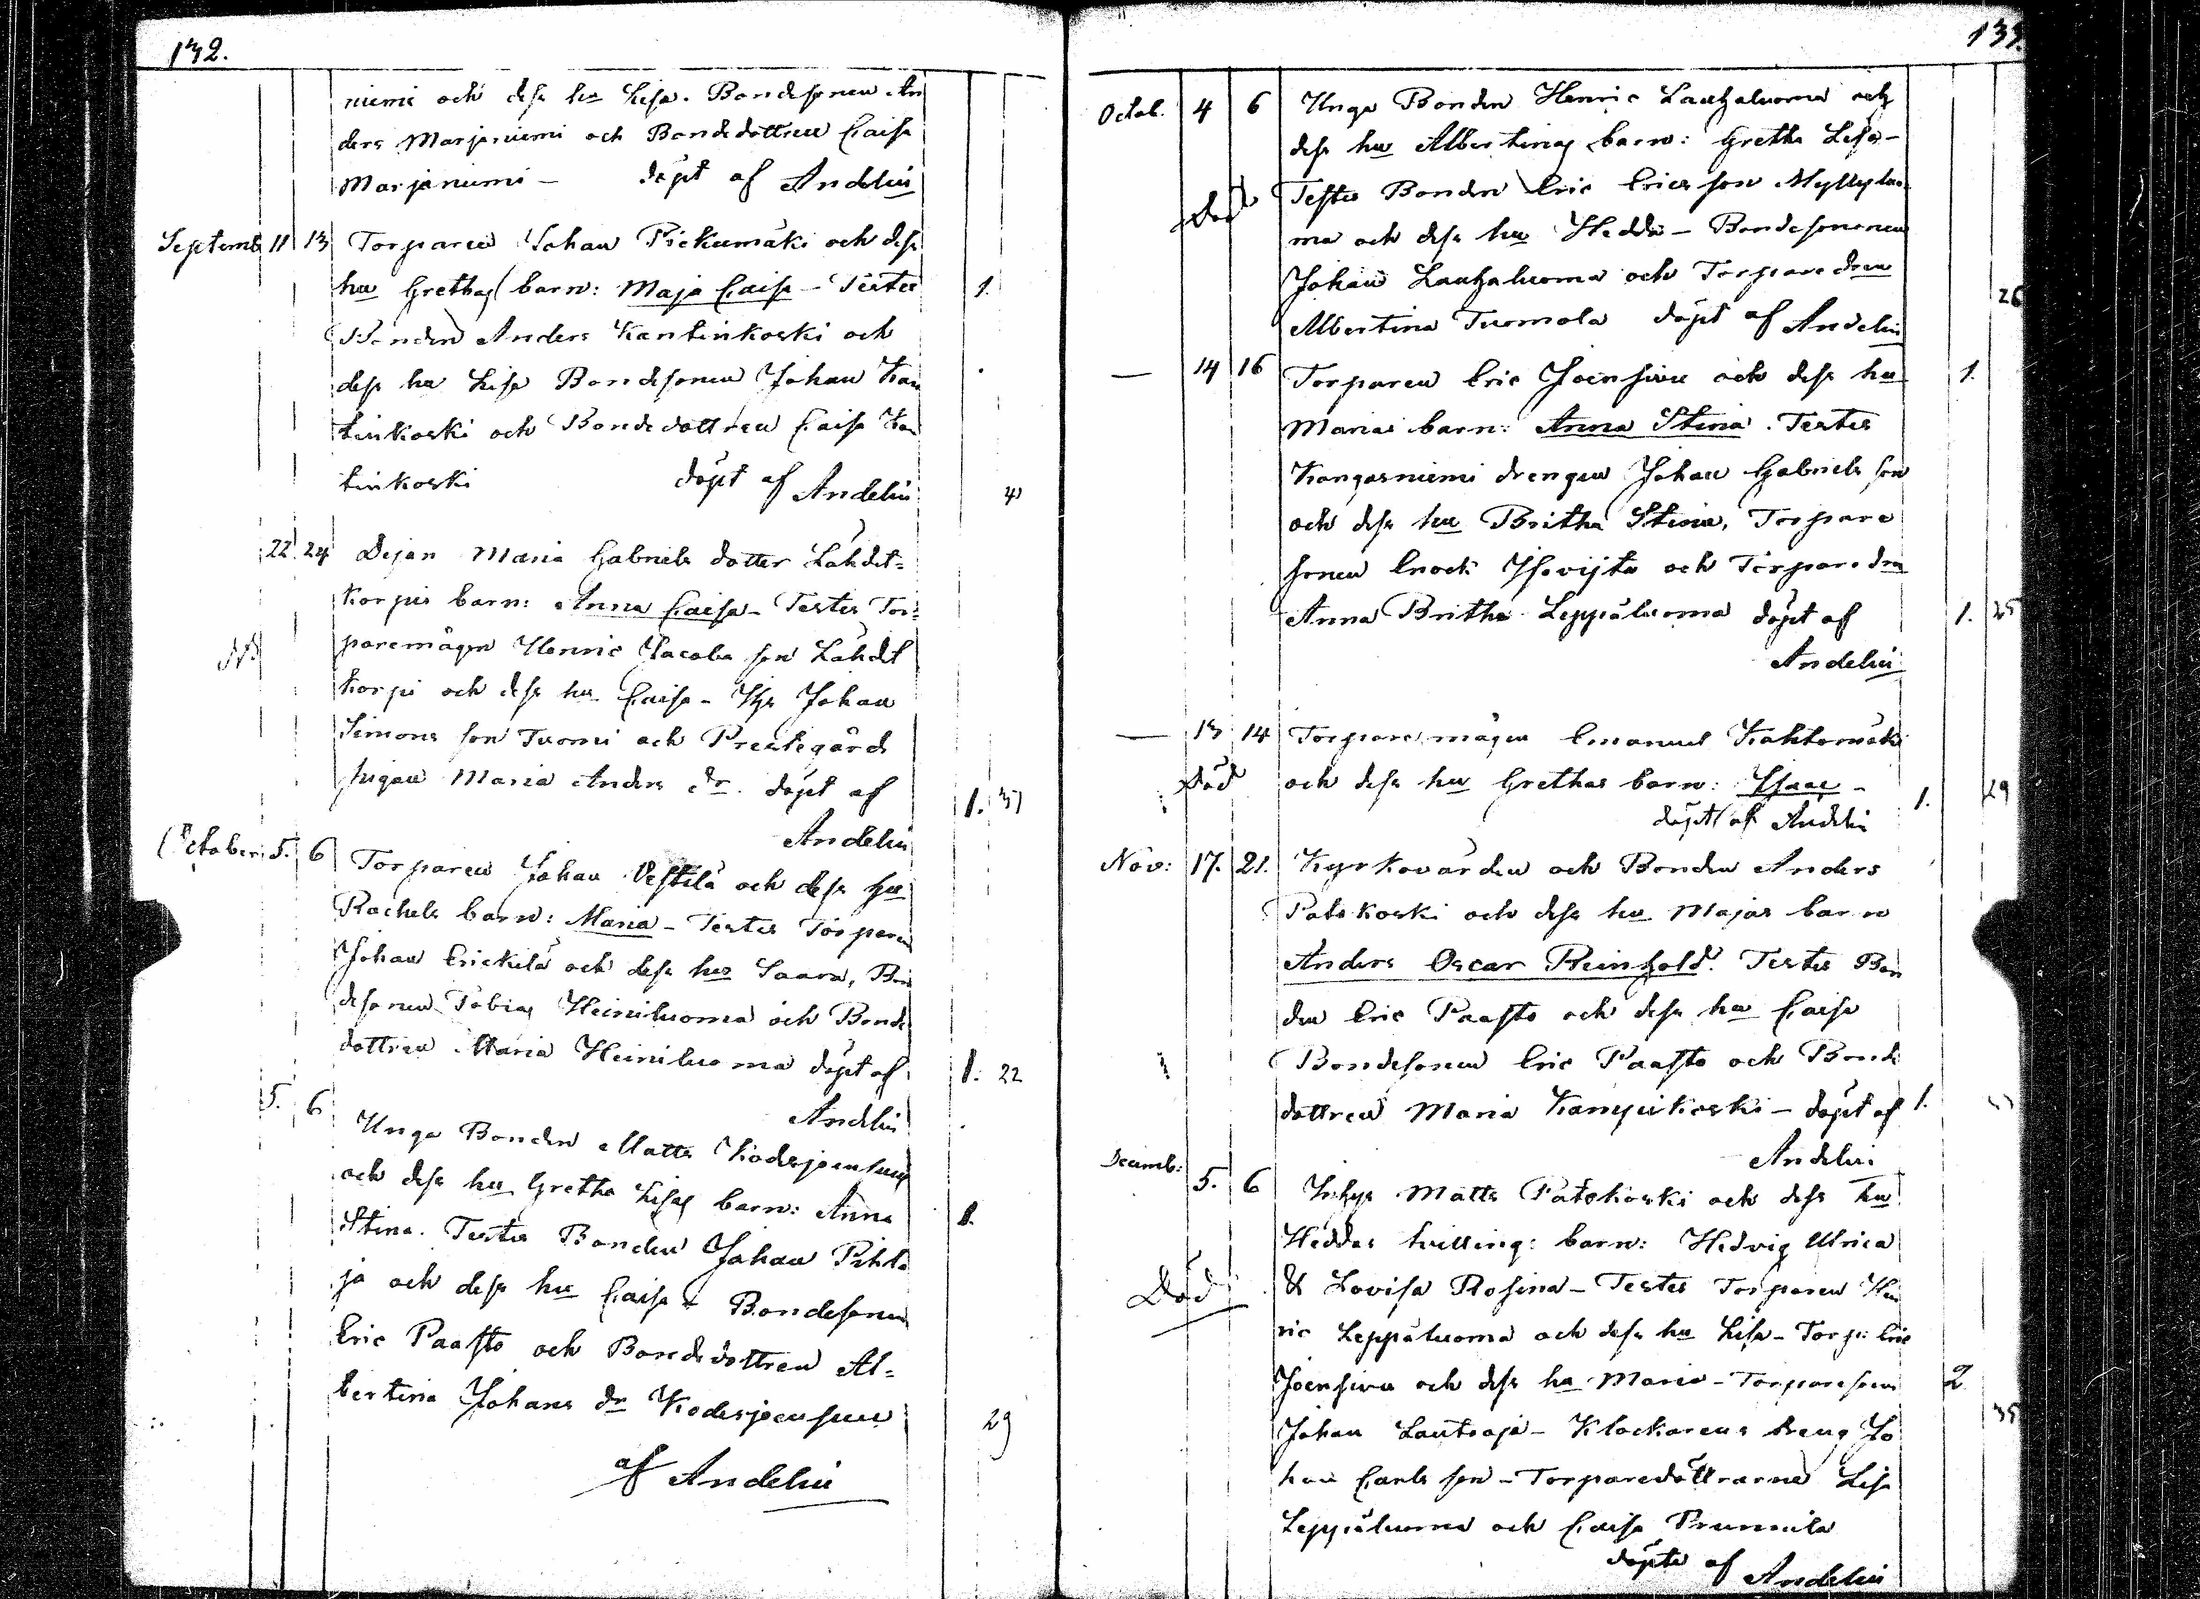 132.
niemi och dess hu Lisa. Bondesonen An
ders Marjaniemi och Bondedottren Caisa
Marjaniemi – döpt af Andelin
Septemb 11 13 Torparen Johan Pickumäki och dess
hu Grethas barn: Maja Caisa – Testes 1.
Bonden Anders Kantinkoski och
dess hu Lisa Bondesonen Johan Kan
tinkoski och Bondedottren Caisa Kan
tinkoski döpt af Andelin
22 24 Dejan Maria Gabriels dotter Lähdet=
korpis barn: Anna Caisa – Testes Tor=
paremågen Henric Jacobs son Lähdet
korpi och dess hu Caisa – Johan
Simons son Tuomi och Prestegårds
pigan Maria Anders dr. döpt af 1. 37
Andelin
October: 5. 6 Torparen Johan Vestilä och dess hu
Rachels barn: Maria – Testes Torparen
Johan Erickilä och dess hu Saara, Bon
desonen Tobias Heiniluoma och Bonde
dottren Maria Heiniluoma döpt af 1. 22
Andelin
5. 6 Unga Bonden Matts Kodesjoensuu
och dess hu Gretha Lisas barn: Anna 1.
Stina. Testes Bonden Johan Pihla
ja och dess hu Caisa – Bondesonen
Eric Paasto och Bondedottren Al=
bertina Johans dr Kodesjoensuu
29
af Andelin
133.
Octob. 4 6 Unga Bonden Henric Lautzaluoma och
dess hu Albertinas barn: Gretha Lisa –
Död Testes Bonden Eric Ericsson Myllyluo
ma och dess hu Hedda – Bondesonen
Johan Lautzaluoma och Torparedren
26
Albertina Tuomola döpt af Andelin
— 14 16 Torparen Eric Joensivu och dess hu 1.
Marias barn: Anna Stina. Testes
Kangasniemi drengen Johan Gabriels son
och dess hu Britha Stina, Torpare
sonen Enoch och Torparedrn
Anna Britha Leppäluoma döpt af 1. 25
Andelin
— 13 14 Torpare mågen Emanuel Kahtomäki
Död och dess hu Grethas barn: Isaac – 1. 29
döpt af Andelin
Nov: 17. 21. Kyrkovärden och Bonden Anders
Patokoski och dess hu Majas barn
Anders Oscar Reinhold. Testes Bon
den Eric Paasto och dess hu Caisa
Bondesonen Eric Paasto och Bonde
dottren Maria Kampikoski – döpt af 1.
Andelin
Decemb: 5. 6 Inhys Matts Patokoski och dess hu
Heddas tvilling: barn: Hedvig Ulrica
Död & Lovisa Rosina – Testes Torparen Hen
ric Leppäluoma och dess hu Lisa – Torp: Eric
Joensivu och dess hu Maria – Torparesonen 2
Johan Lautoaja – Klockarens dreng Jo 35
han Carls son – Torparedöttrarna Lisa
Leppäluoma och Caisa Prunnila
döpte af Andelin